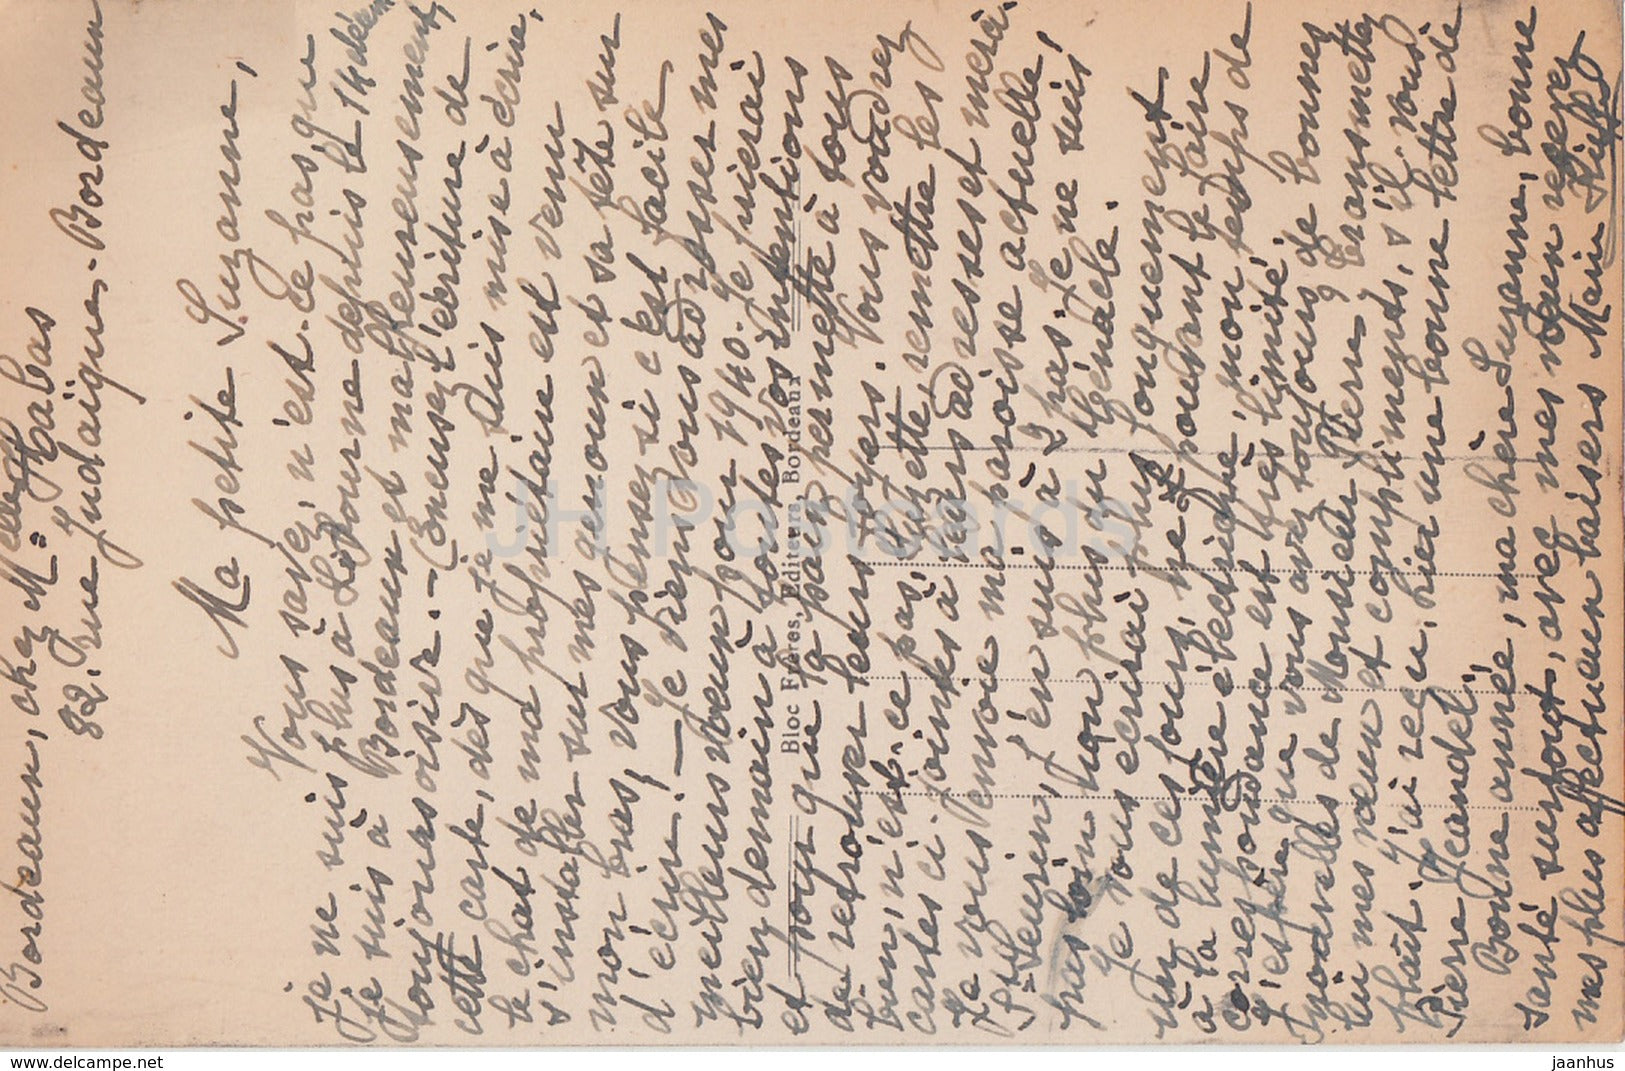 Bordeaux, chez Melle Habas
82. Rue Judaïque - Bordeaux
Ma petite Suzanne,
Vous savez, n'est-ce pas que
je ne suis plus à Libourne depuis le 14 décem
Je suis à Bordeaux et malheureusement,
toujours oisive. - (Excusez l'écriture de
cette carte, dès que je me suis mise à écrire,
le chat de ma propriétaire est venu
s'installer sur mes genoux et sa tête sur
mon bras, vous pensez si c'est facile
d'écrire! - Je viens vous adresser mes
meilleurs voeux pour 1940. Je prierai
bien demain à toutes vos intentions
et pour que la paix permette à tous
de retrouver leurs foyers. Vous voudrez
bien n'est-ce pas, remettre les
cartes ci-jointes à leurs adresses et merci.
Je vous envoie ma paroisse actuelle,
St Seurin, j'en suis à 2 pas. Je ne suis
pas loin non plus du Cénacle.
Je vous écrirai plus longuement
un de ces jours, ne pouvant le faire
à la lumière électrique, mon temps de
correspondance est très limité.
J'espère que vous avez toujours de bonnes
nouvelles de Monsieur Pierre, transmettez
lui mes voeux et compliments, s'il vous
plaît. J'ai reçu hier une bonne lettre de
Pierre Jeandel.
Bonne année, ma chère Suzanne, bonne
santé surtout, avec mes voeux recevez
mes plus affectueux baisers Marie
Bloc Frères, Editeurs Bordeaux
JH Postcards
www.delcampe.net
jaanhus